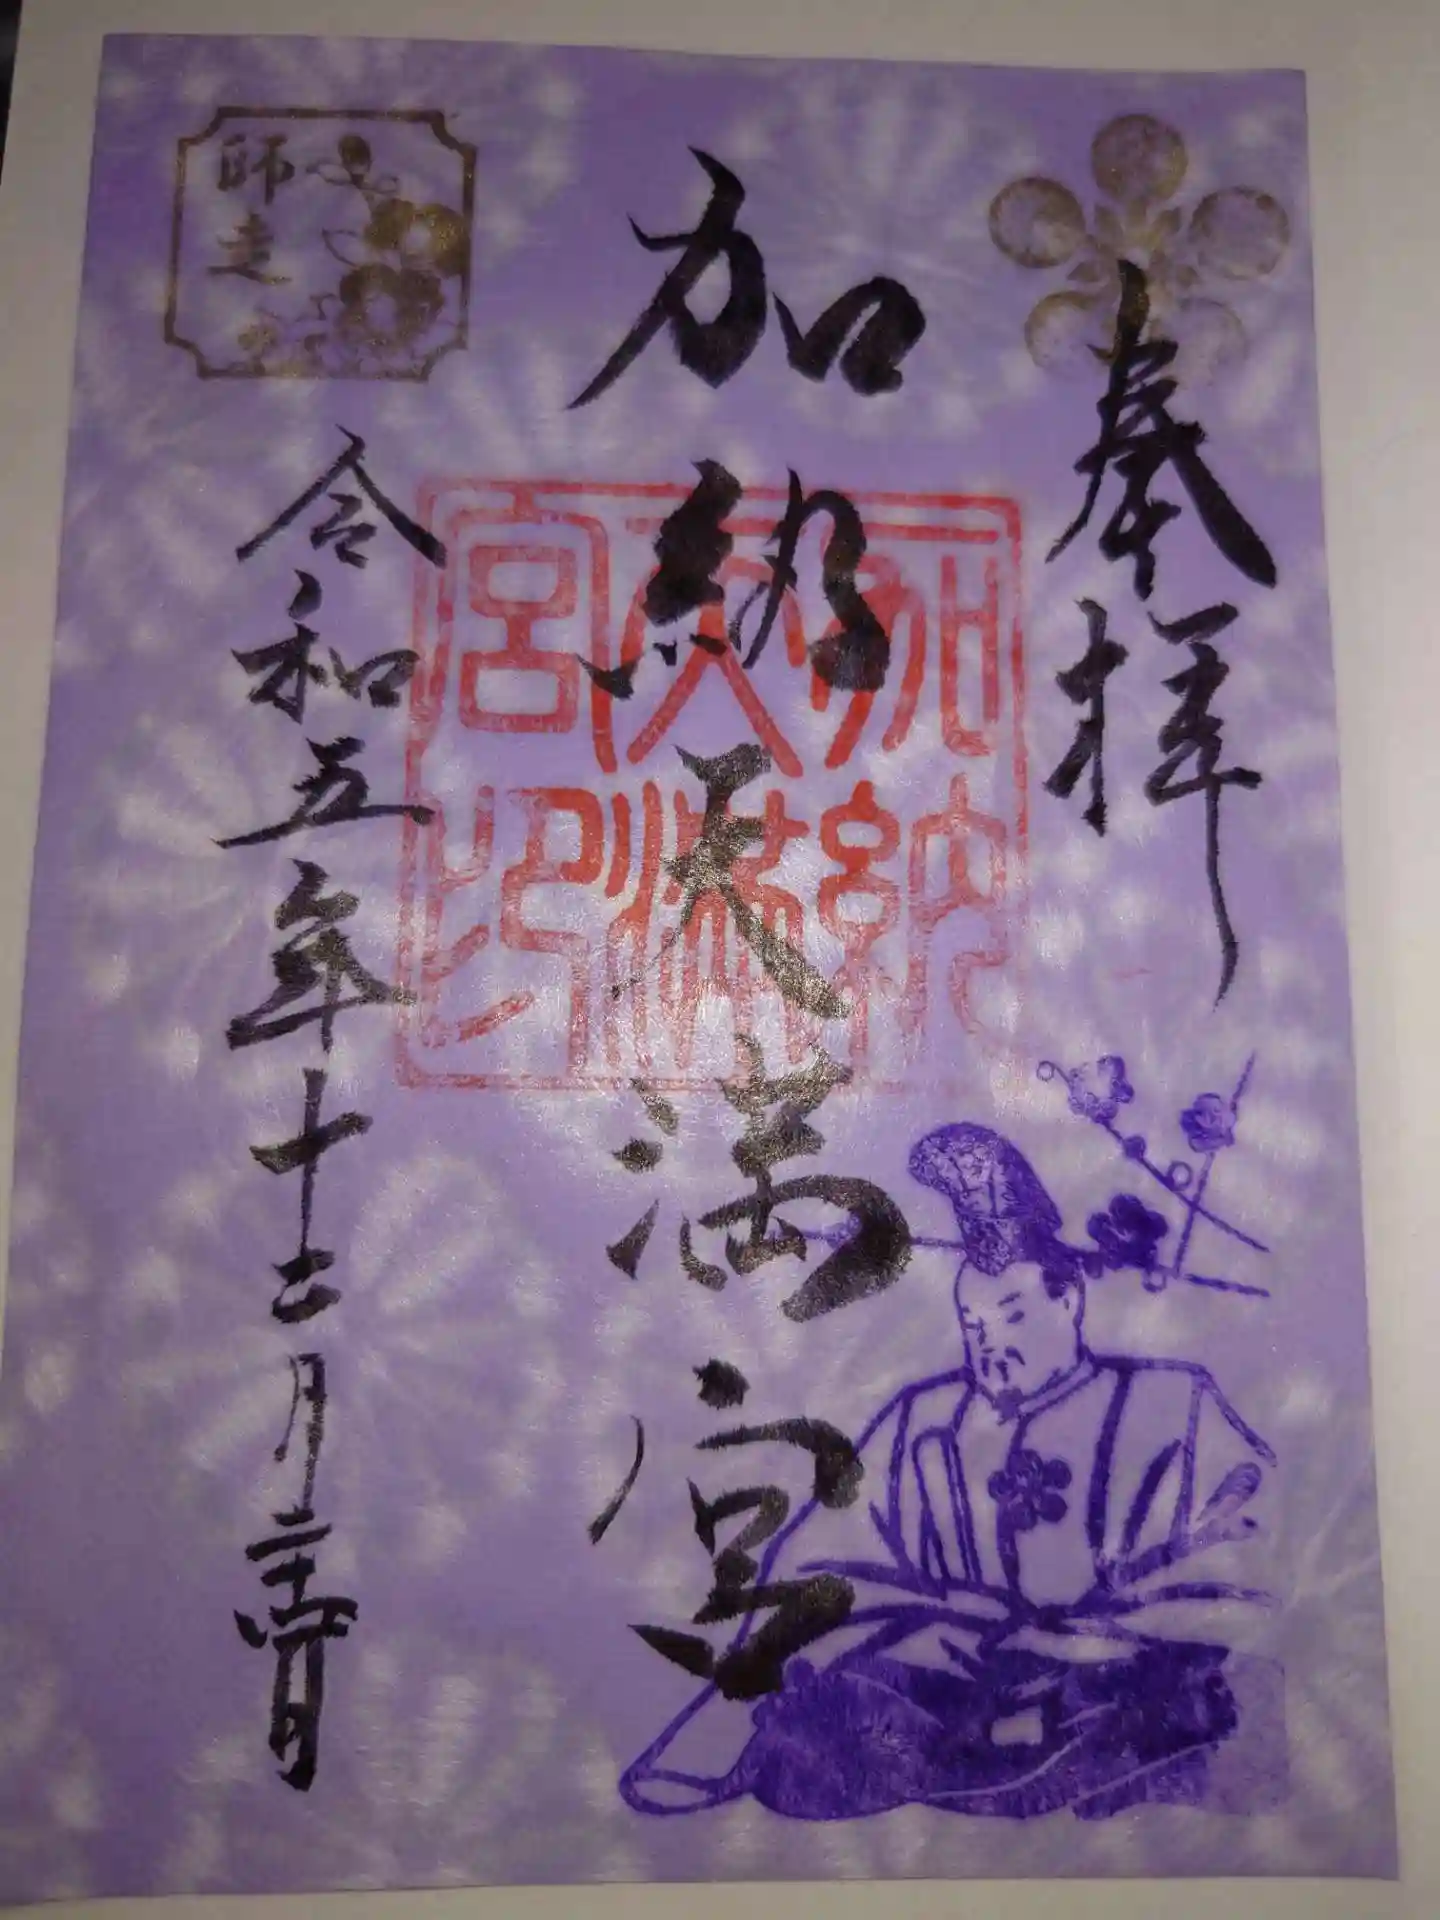 奉拝
加納天満宮
加納
天満
宮印
師走
令和五年十二月